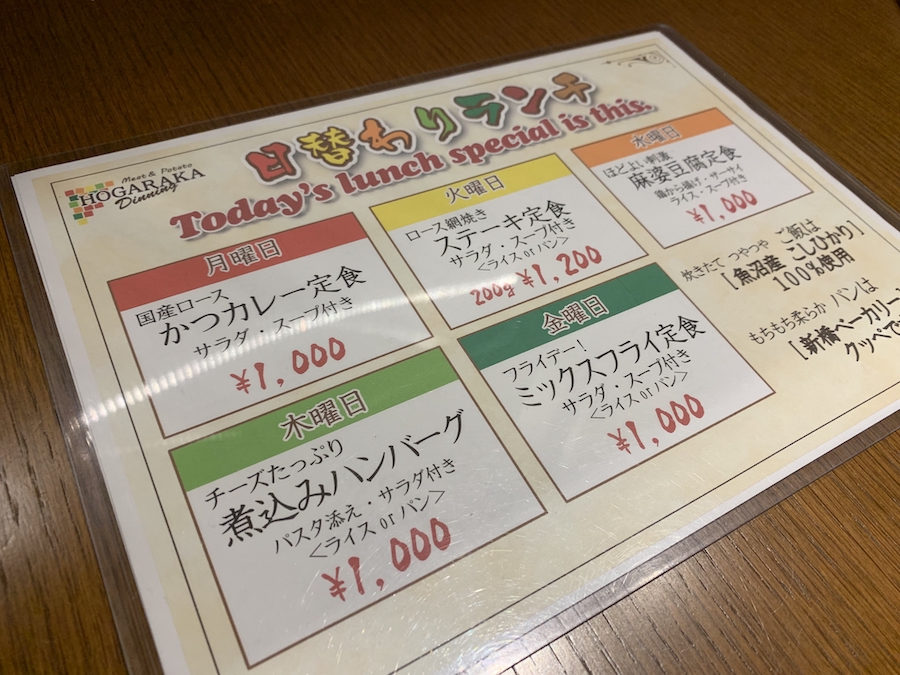 Meat & Potato
HOGARAKA
Dinning
日替わりランチ
Today's lunch special is this.
月曜日
国産ロース
かつカレー定食
サラダ・スープ付き
¥1,000
火曜日
ロース網焼き
ステーキ定食
サラダ・スープ付き
<ライス or パン>
200g ¥1,200
水曜日
ほどよい刺激
麻婆豆腐定食
鶏から揚げ・ザーサイ
ライス・スープ付き
¥1,000
木曜日
チーズたっぷり
煮込みハンバーグ
パスタ添え・サラダ付き
<ライス or パン>
¥1,000
金曜日
フライデー!
ミックスフライ定食
サラダ・スープ付き
<ライス or パン>
¥1,000
炊きたて つやつや ご飯は
[魚沼産 こしひかり]
100%使用
もちもち柔らか パンは
[新橋ベーカリー
クッペで